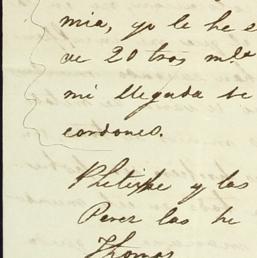 mia, yo le he e
de 20 tros m.ª
mi llegada se
cordones.
y las
Perez las he
Thomas